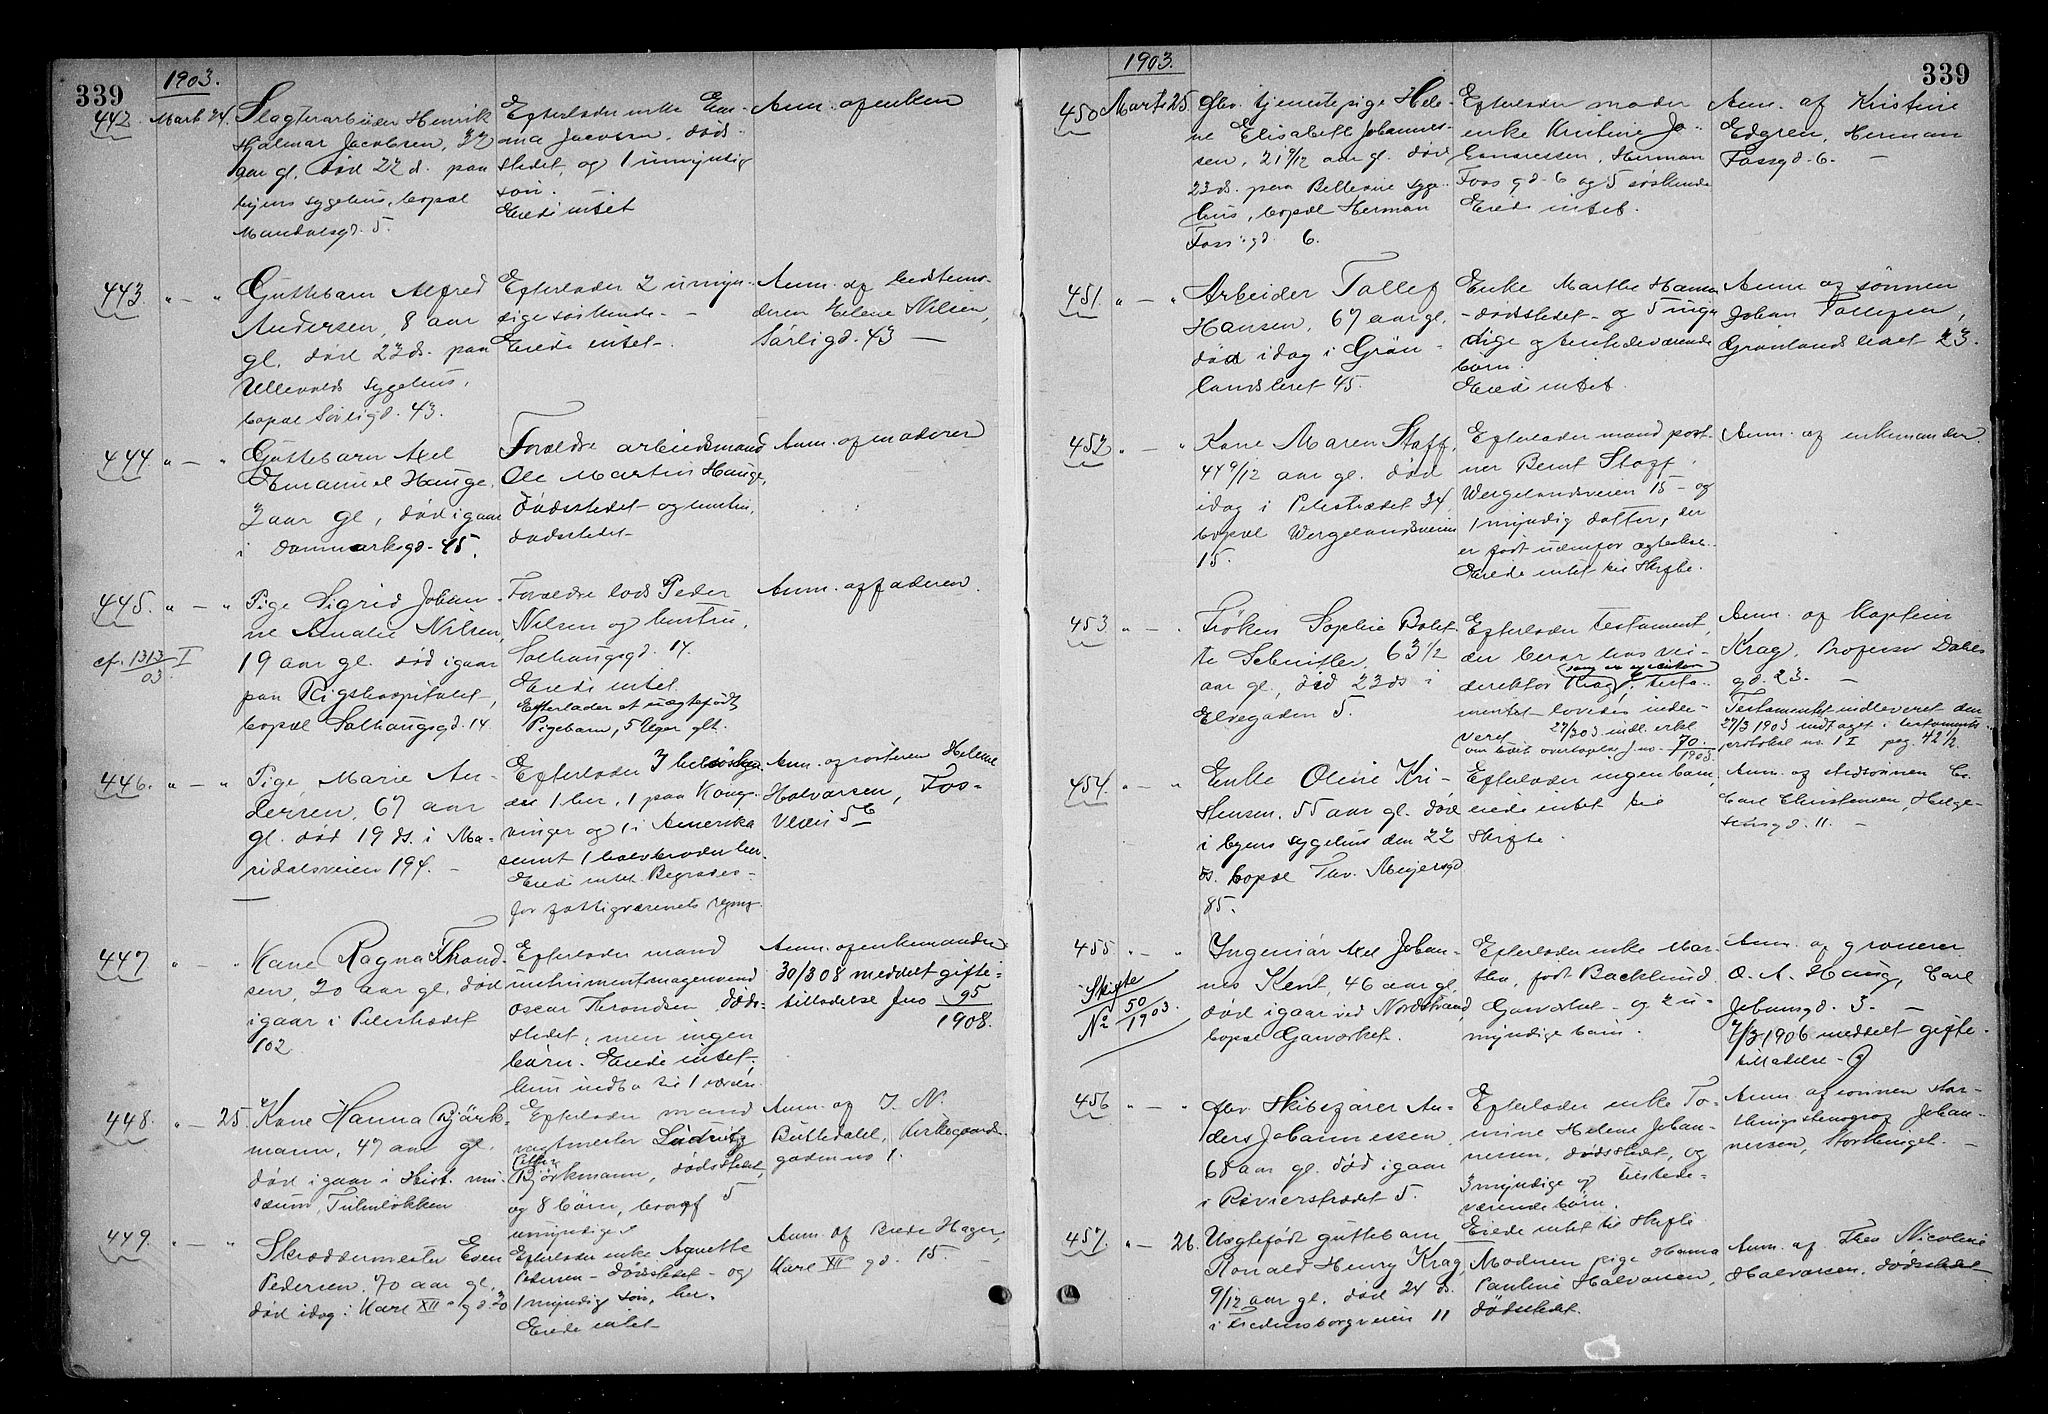 339
1903.
442. Marts 24. Slagterarbeider Henrik
Hjalmar Jacobsen, 32
aar gl. død 22 ds. paa
byens sygehus, bopæl
Mandalsgd. 5.
Efterlader enke Em-
ma Jacobsen, døds-
stedet, og 1 umyndig
søn.
Eiede intet
Anm. af enken
443. " — " Guttebarn Alfred
Andersen, 8 aar
gl. død 23 ds. paa
Ullevolds sygehus,
bopæl Sørligd. 43.
Efterlader 2 umyn-
dige søskende. —
Eiede intet.
Anm. af bedstemo-
deren Helene Nilsen,
Sørligd. 43 —
444. " — " Guttebarn Axel
Emanuel Hauge,
2 aar gl, død igaar
i Danmarksgd. 45.
Forældre arbeidsmand
Ole Martin Hauge,
dødsstedet og hustru,
dødsstedet.
Anm. af moderen
445. " — " Pige Sigrid Johan-
ne Amalie Nilsen,
cf. 1313/03 I
19 aar gl. død igaar
paa Rigshospitalet,
bopæl Solhaugsgd. 14
Forældre lods Peder
Nilsen og hustru,
Solhaugsgd. 14.
Eiede intet.
Efterlader et uægtefødt
Pigebarn, 5 Uger glt.
Anm. af faderen.
446. " — " Pige, Marie An-
dersen, 67 aar
gl. død 19 ds. i Ma-
ridalsveien 194. —
Efterlader 3 helsøsken
de 1 her, 1 paa Kongs-
vinger og 1 i Amerika
samt 1 halvbroder her.
Eiede intet. Begraves
for fattigvæsenets regng.
Anm. af søsteren Helene
Halvorsen, Fos-
veien 5c
447. " — " Kone Ragna Thrond-
sen, 20 aar gl. død
igaar i Pilestrædet
102
Efterlader mand
instrumentmagersvend
Oscar Throndsen, døds-
stedet, men ingen
børn. Eiede intet,
Anm. af enkemanden
30/3 08 meddelt gifte-
tilladelse Jns 95/1908.
448. " — 25. Kone Hanna Bjørk-
mann, 47 aar gl.
død igaar i Hist. mu-
sæum, Tulinløkken
Efterlader mand
vagtmester Ludvig
Petter
Bjørkmann, dødsstedet,
og 8 børn, hvoraf 5
umyndige
Anm. af J. N.
Buttedahl, Kirkegaards-
gaden no 1.
449. " — " Skræddermester Even
Pedersen, 70 aar gl.
død idag i Karl XII gd. 20
Efterlader enke Agnette
Pedersen – dødsstedet – og
1 myndig søn, her.
Eiede intet
Anm. af Brede Hager,
Karl XII gd. 15. —
1903.
339
450 Marts 25. Ugv. tjenestepige Hele-
ne Elisabeth Johannes-
sen, 21 9/12 aar gl. død
23 ds. paa Bellevue syge-
hus, bopæl Herman
Foss' gd. 6.
Efterlader moder
enke Kristine Jo-
hannessen, Herman
Foss gd. 6 og 5 søskende
Eiede intet.
Anm. af Kristine
Edgren, Herman
Fossgd. 6. —
451. " — " Arbeider Tollef
Hansen, 67 aar gl.
død idag i Grøn-
landsleret 45.
Enke Marthe Hansen
– dødsstedet – og 5 myn-
dige og tilstedeværende
børn.
Eiede intet.
Anm af sønnen
Johan Tollefsen,
Grønlandsleret 23.
452 " — " Kone Maren Stoff,
44 9/12 aar gl. død
idag i Pilestrædet 34
bopæl Wergelandsveien
15.
Efterlader mand port-
ner Bernt Stoff,
Wergelandsveien 15 – og
1 myndig datter, der
er født udenfor ægteskab.
Eiede intet til Skifte.
Anm. af enkemanden.
453. " — " Frøken Sophie Bolet-
te Schnitler, 63 1/2
aar gl., død 23 ds i
Elvegaden 5.
Efterlader testament,
der beror hos vei-
direktør Krag, testa-
mentet lovedes inde-
veret
om boets overtagelse J. no. 70/1903.
Anm. af Kaptein
Krag, Professor Dahls
gd. 23. —
Testamentet indleveret den
27/3 1903 indtaget i testaments-
protokol no. 1 I pag. 42 1/2.
454. " — " Enke Oline Kri-
stensen, 55 aar gl. død
i byens sygehus den 22
ds. bopæl Thv. Meyersgd
85.
Efterlader ingen barn,
eiede intet til
Skifte.
Anm. af stedsønnen
Carl Christensen, Helge-
sensgd. 11. —
455 " — " Ingeniør Axel Johan-
nes Kent, 46 aar gl.
død igaar ved Nordstrand,
bopæl Gasværket.
Skifte
No 50/1903.
Efterlader enke Mar-
tha, født Backlund
Gasværket – og 2 u-
myndige børn.
Anm. af grosserer
O. A. Haug, Carl
Johansgd. 3. —
7/3 1906 meddelt gifte-
tilladelse –
456 " — " fhv. Skibsfører An-
ders Johannessen,
68 aar gl. død igaar
i Revierstrædet 5.
Efterlader enke To-
mine Helene Johan-
nessen, dødsstedet, og
3 myndige og tilstede-
værende børn.
Eiede intet til Skifte
Anm. af sønnen stor-
thingsstenograf Johan-
nessen, Storthinget. —
457. " — 26. Uægtefødt guttebarn
Ronald Henry Krag,
9/12 aar gl. død 24 ds.
i Fredensborgveien 11
Moderen pige Hanna
Pauline Halvorsen,
dødsstedet.
Anm. af Thea Nicoline
Halvorsen, dødsstedet.